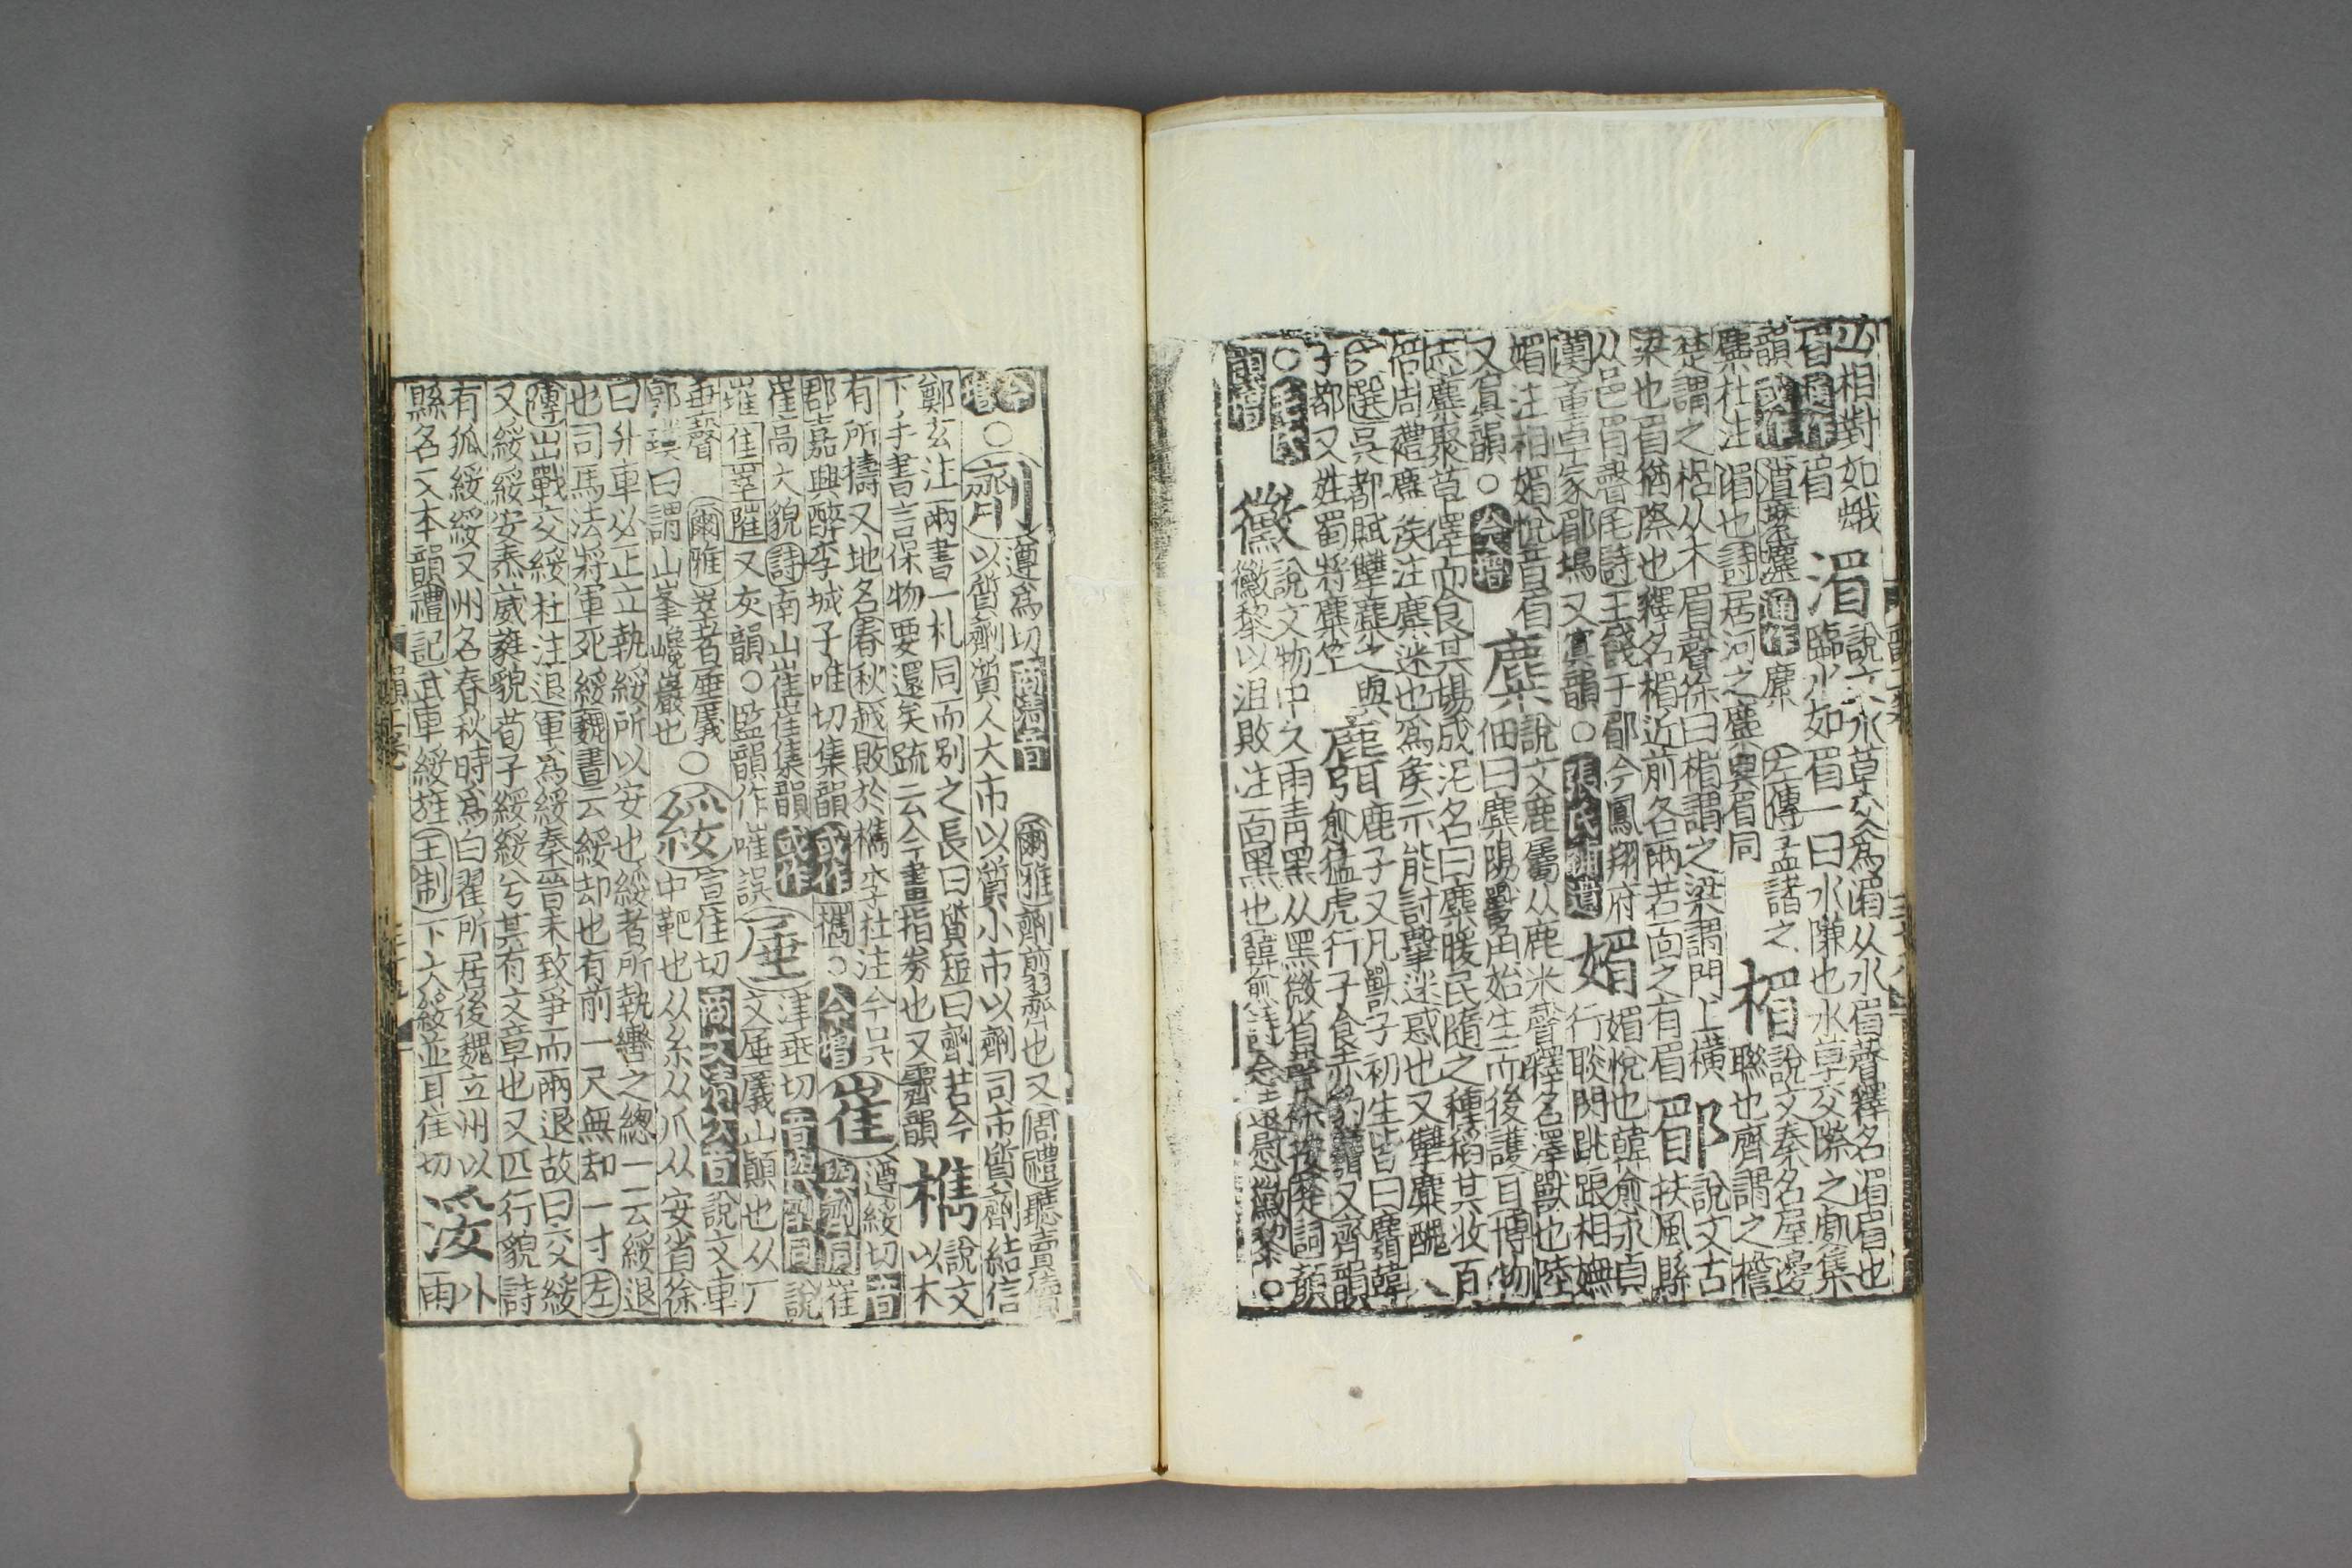 山相對如蛾
眉通作
眉
湄
說文水草交爲湄从水眉聲釋名湄眉也
臨水如眉一曰水隒也水草交際之處集
韻或作
濔麋壪通作麋
左傳孟諸之
麋杜注湄也詩居河之麋與眉同
楣
說文秦名屋邊
聯也齊謂之檐
楚謂之梠从木眉聲徐曰楣謂之梁謂門上橫
梁也眉猶際也釋名楣近前各兩若面之有眉
郿
說文古
扶風縣
从邑眉聲毛詩王餞于郿今鳳翔府
漢董卓家郿塢又寘韻○張氏補遺
媚
媚悅也韓愈永貞
行聯肹跳踉相嫵
媚注相媚悅音眉
又寘韻○今增
麋
說文鹿屬从鹿米聲釋名澤獸也陸
佃曰麋陽獸角始生而後護百博物
志麋聚草澤而食其場成泥名曰麋畯民隨之種稻其收百
倍周禮麋侯注麋迷也爲侯示能討擊迷惑也又犨麋醜人
文選吳都賦犨麋之與
子都又姓蜀將麋竺
麛
鹿子又凡獸子初生皆曰麛韓
愈猛虎行子食赤豹麛又齊韻
○毛氏
韻增
黴
說文物中久雨青黑从黑微省聲徐按楚詞顏
黴黎以沮敗注面黑也韓愈詩念之還慰黴黎○
今
增
○
劑
遵爲切商清音
爾雅劑翦齊也又周禮聽賣儥
以質劑質人大市以質小市以劑司市質劑結信
鄭玄注兩書一札同而別之長曰質短曰劑若今
下手書言保物要還矣疏云今畫指券也又霽韻
檇
說文
以木
有所擣又地名春秋越敗於檇李杜注今吳
郡嘉興醉李城子唯切集韻或作㰎○今增
崔
遵綏切音
與劑同崔
崔高大貌詩南山崔崔集韻或作
嗺𡹐崒隦又灰韻○監韻作嗺誤
厜
津垂切音與劑同說
文厜㕒山顛也从厂
垂聲
爾雅崒者厜㕒
郭璞曰謂山峯巉巖也
○
綏
宣隹切商次清次音說文車
中靶也从糸从爪从安省徐
曰升車必正立執綏所以安也綏者所執轡之總一云綏退
也司馬法將軍死綏魏書云綏却也有前一尺無却一寸左
傳出戰交綏杜注退軍爲綏秦晉未致爭而兩退故曰交綏
又綏綏安泰葳蕤貌荀子綏綏兮其有文章也又匹行貌詩
有狐綏綏又州名春秋時爲白翟所居後魏立州以
縣名又本韻禮記武車綏旌王制下大綏並耳隹切
浽
小
雨